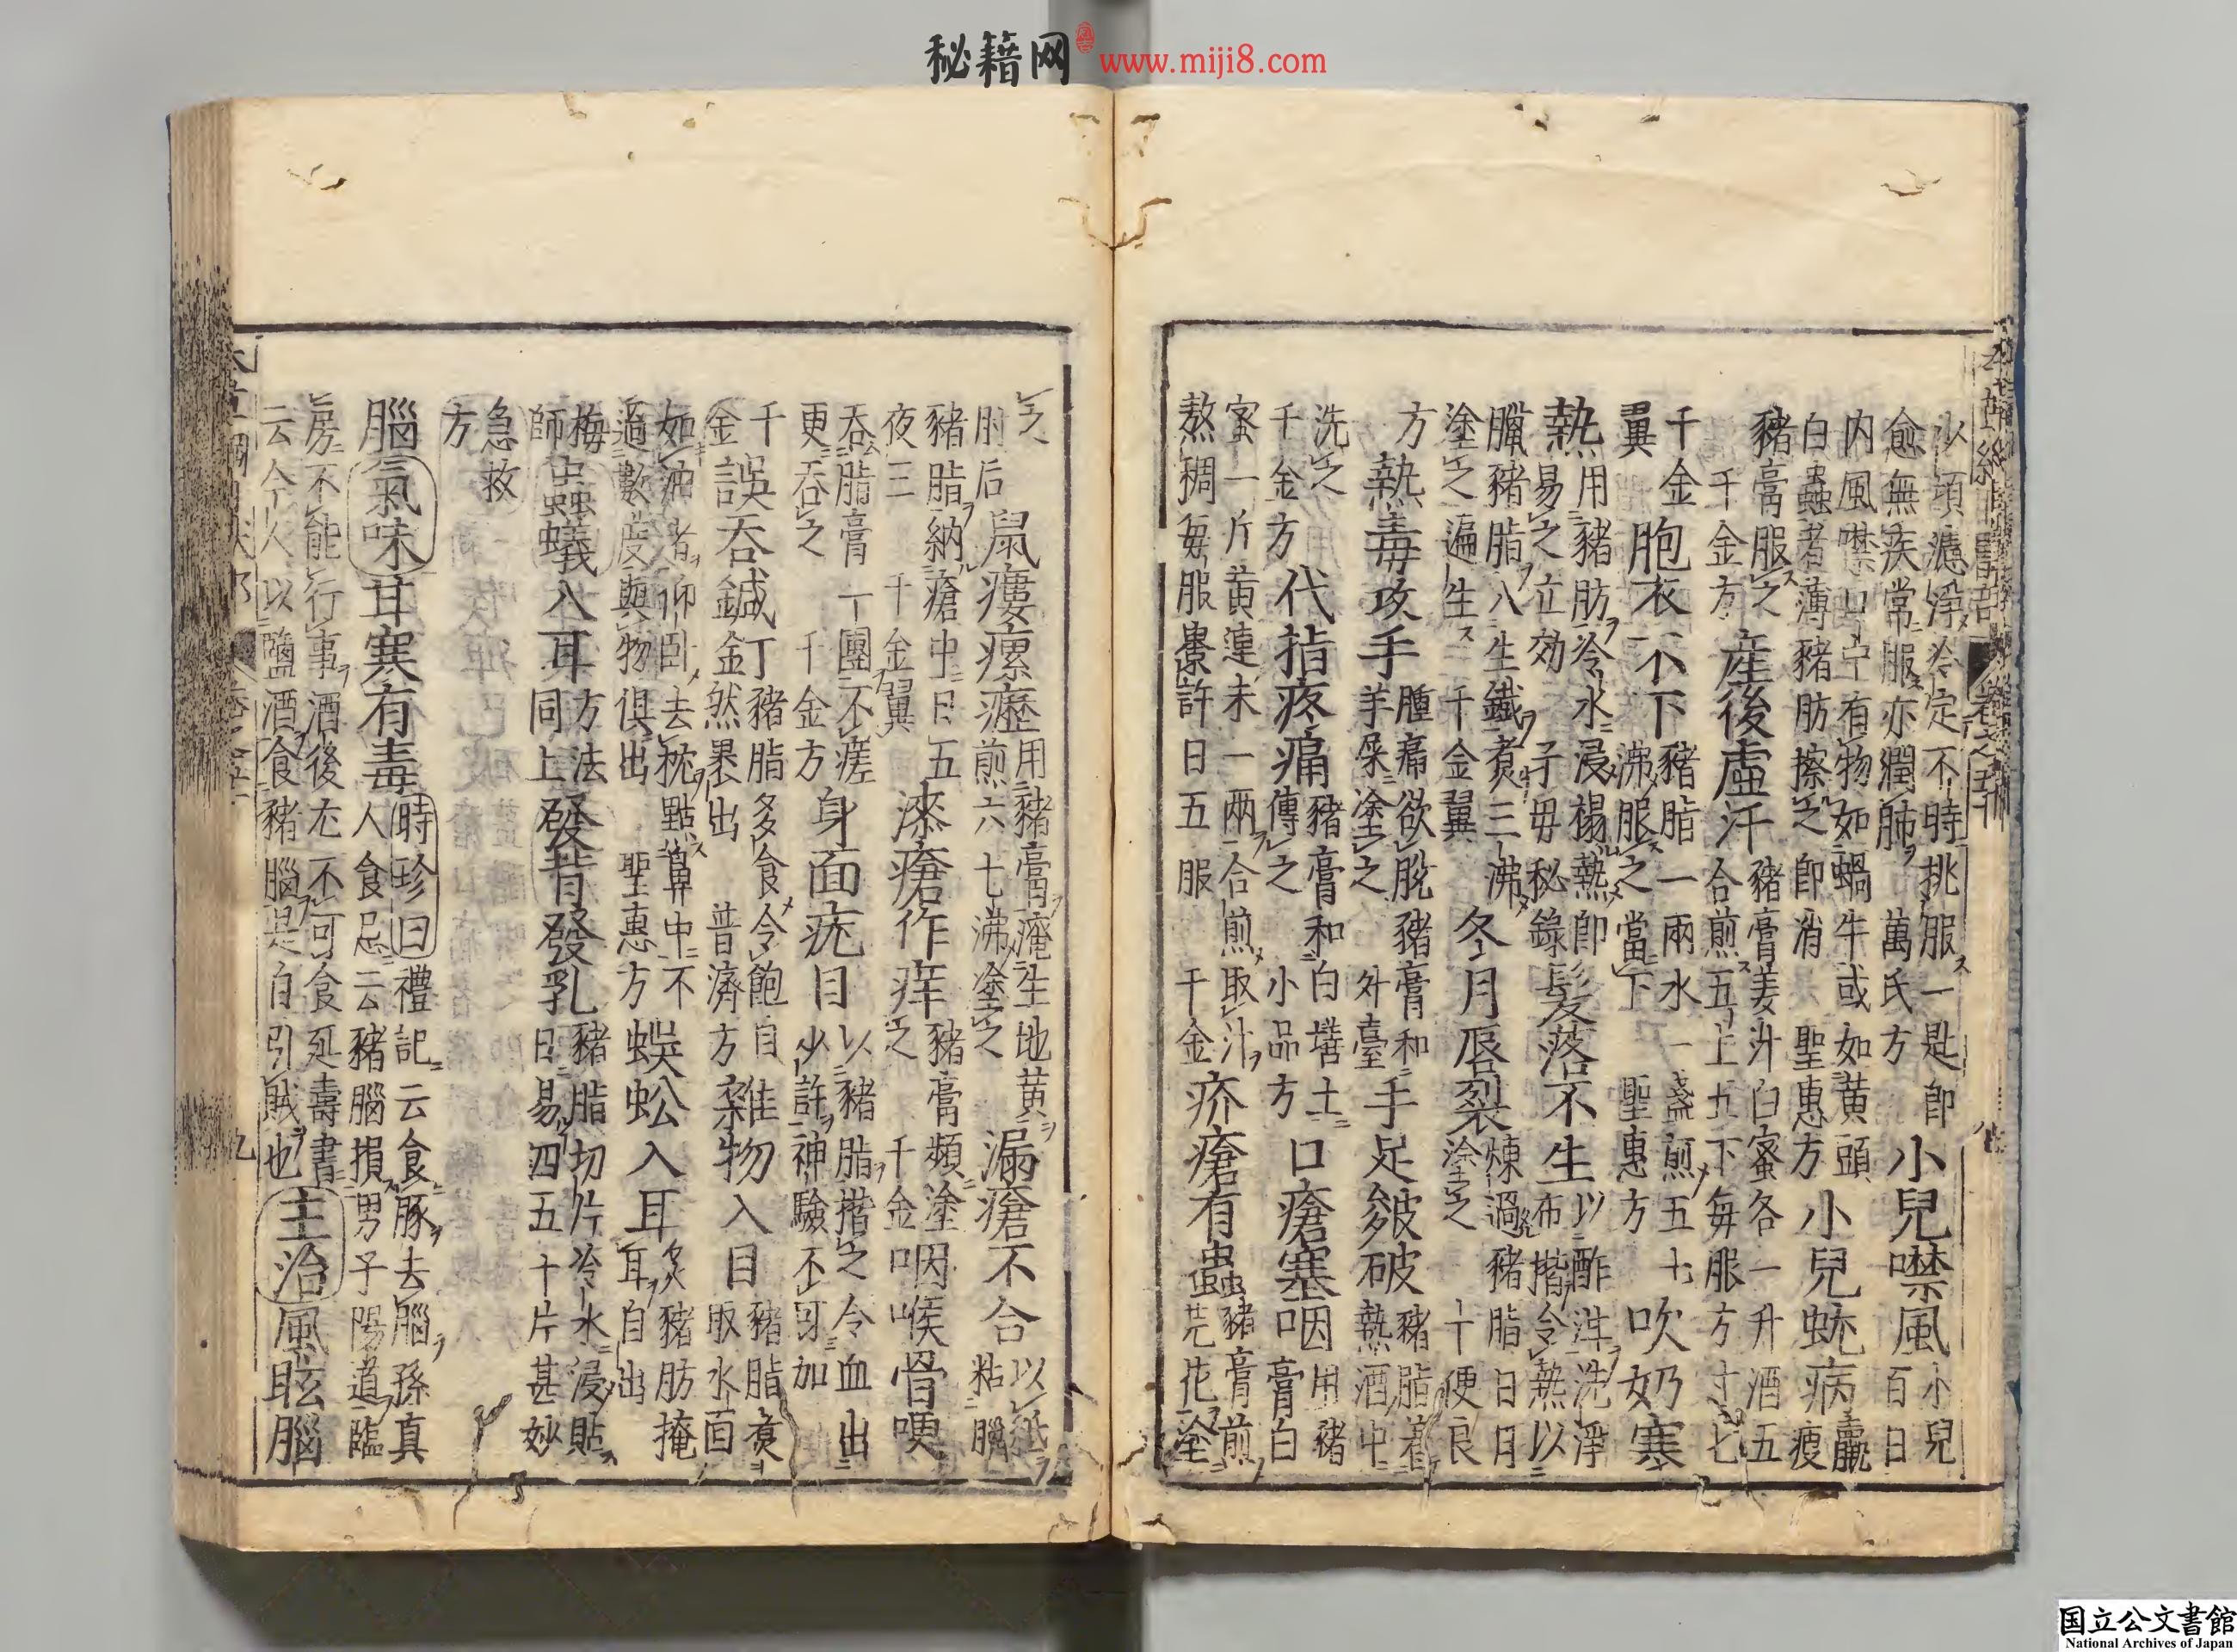 秘籍网 www.miji8.com
少頃濾淨冷定不時挑服一匙即愈無疾常服亦潤肺萬氏方小兒噤風小兒百日
内風噤口中有物如蝸牛或如黄頭白蟲者薄豬肪擦之即消聖惠方小兒蚘病羸瘦
豬膏服之千金方産後虚汗豬膏姜汁白蜜各一升酒五合煎五上五下每服方寸匕
千金翼胞衣不下豬脂一兩水一盞煎五七沸服之當下聖惠方吹奶寒
熱用豬肪冷水浸搨熱即易之立効子母秘録髮落不生以酢泔洗淨布揩令熱以
臘豬脂入生鐵煮三沸塗之遍生千金翼冬月唇裂煉過豬脂日日塗之十便良
方熱毒攻手腫痛欲脱豬膏和羊屎塗之外臺手足皴破豬脂着熱酒中
洗之千金方代指疼痛豬膏和白墡土傅之小品方口瘡塞咽用豬膏白
蜜一斤黄連末一兩合煎取汁熬稠每服棗許日五服千金疥瘡有蟲豬膏煎芫花塗
之肘后鼠瘻瘰癧用豬膏淹生地黄煎六七沸塗之漏瘡不合以紙粘臘
豬脂納瘡中日五夜三千金翼漆瘡作痒豬膏頻塗之千金咽喉骨哽
吞脂膏一團不瘥更吞之千金方身面疣目以豬脂揩之令血出少許神驗不可加
千金誤吞鍼釘豬脂多食令飽自然裹出普濟方雜物入目豬脂煮取水面
如油者仰卧去枕點鼻中不過數度與物俱出聖惠方蜈蚣入耳炙豬肪掩耳自出
梅師蟲蟻入耳方法同上發背發乳豬脂切片冷水浸貼日易四五十片甚妙
急救方
腦氣味甘寒有毒時珍曰禮記云食豚去腦孫真人食忌云豬腦損男子陽道臨
房不能行事酒後尤不可食延壽書云今人以鹽酒食豬腦是自引賊也主治風眩腦
国立公文書館
National Archives of Japan